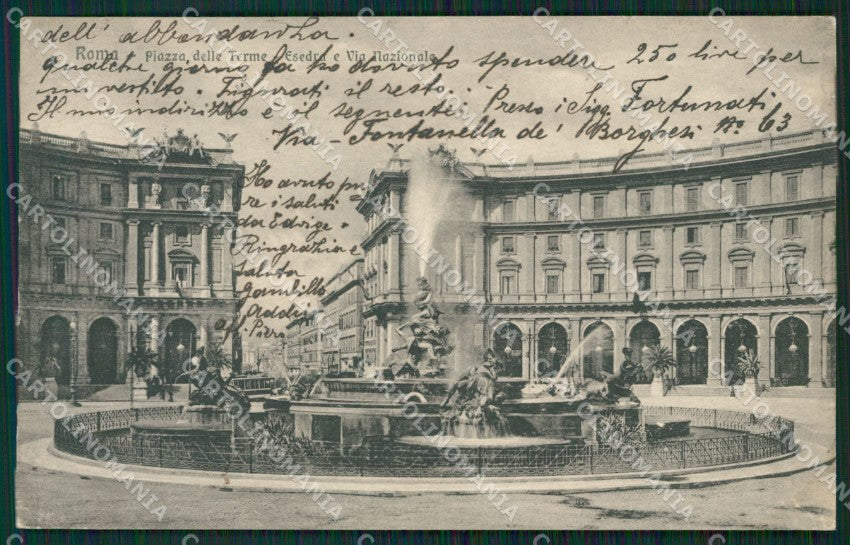 dell' abbondanza.
Roma - Piazza delle Terme - Esedra e Via Nazionale
qualche giorno fa ho dovuto spendere 250 lire per
un vestito. Figurati il resto.
Il mio indirizzo e il seguente: Presso i Sigg. Fortunati
Via - Fontanella de' Borghesi No. 63
Ho avuto pu
re i saluti
da Edvige.
Ringrazia e
saluta
Addio
aff. Piero
CARTOLINOMANIA